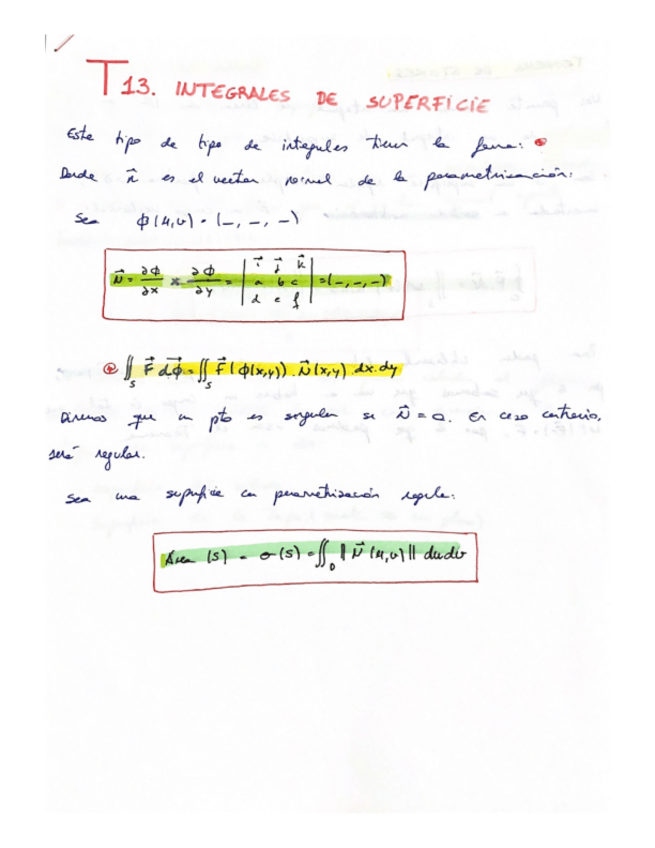 T13. INTEGRALES DE SUPERFICIE
Este tipo de tipo de integrales tienen la forma: ⊛
Donde n⃗ es el vector normal de la parametrización:
Sea ϕ(u,v) = (–, –, –)
N⃗ = ∂ϕ/∂x × ∂ϕ/∂y = | i⃗ j⃗ k⃗ ; a b c ; d e f | = (–, –, –)
⊛ ∬_S F⃗ dϕ⃗ = ∬_S F⃗ (ϕ(x,y)) · N⃗ (x,y) · dx · dy
Diremos que un pto es singular si N⃗ = 0. En caso contrario,
será regular.
Sea una superficie con parametrización regular:
Área (S) = σ(S) = ∬_D ‖ N⃗ (u,v) ‖ du dv